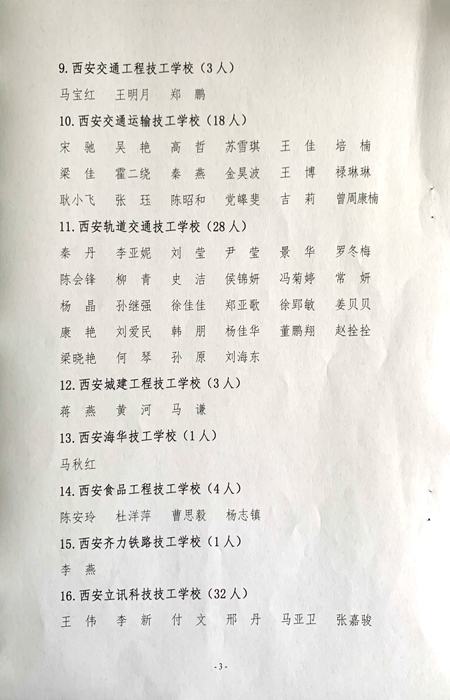 9. 西安交通工程技工学校（3人）
马宝红 王明月 郑 鹏
10. 西安交通运输技工学校（18人）
宋 驰 吴 艳 高 哲 苏雪琪 王 佳 培 楠
梁 佳 霍二绕 秦 燕 金昊波 王 博 禄琳琳
耿小飞 张 珏 陈昭和 党皞斐 吉 莉 曾周康楠
11. 西安轨道交通技工学校（28人）
秦 丹 李亚妮 刘 莹 尹 莹 景 华 罗冬梅
陈会锋 柳 青 史 洁 侯锦妍 冯菊婷 常 妍
杨 晶 孙继强 徐佳佳 郑亚歌 徐郢敏 姜贝贝
康 艳 刘爱民 韩 朋 杨佳华 董鹏翔 赵拴拴
梁晓艳 何 琴 孙 原 刘海东
12. 西安城建工程技工学校（3人）
蒋 燕 黄 河 马 谦
13. 西安海华技工学校（1人）
马秋红
14. 西安食品工程技工学校（4人）
陈安玲 杜洋萍 曹思毅 杨志镇
15. 西安齐力铁路技工学校（1人）
李 燕
16. 西安立讯科技技工学校（32人）
王 伟 李 新 付 文 邢 丹 马亚卫 张嘉骏
- 3 -